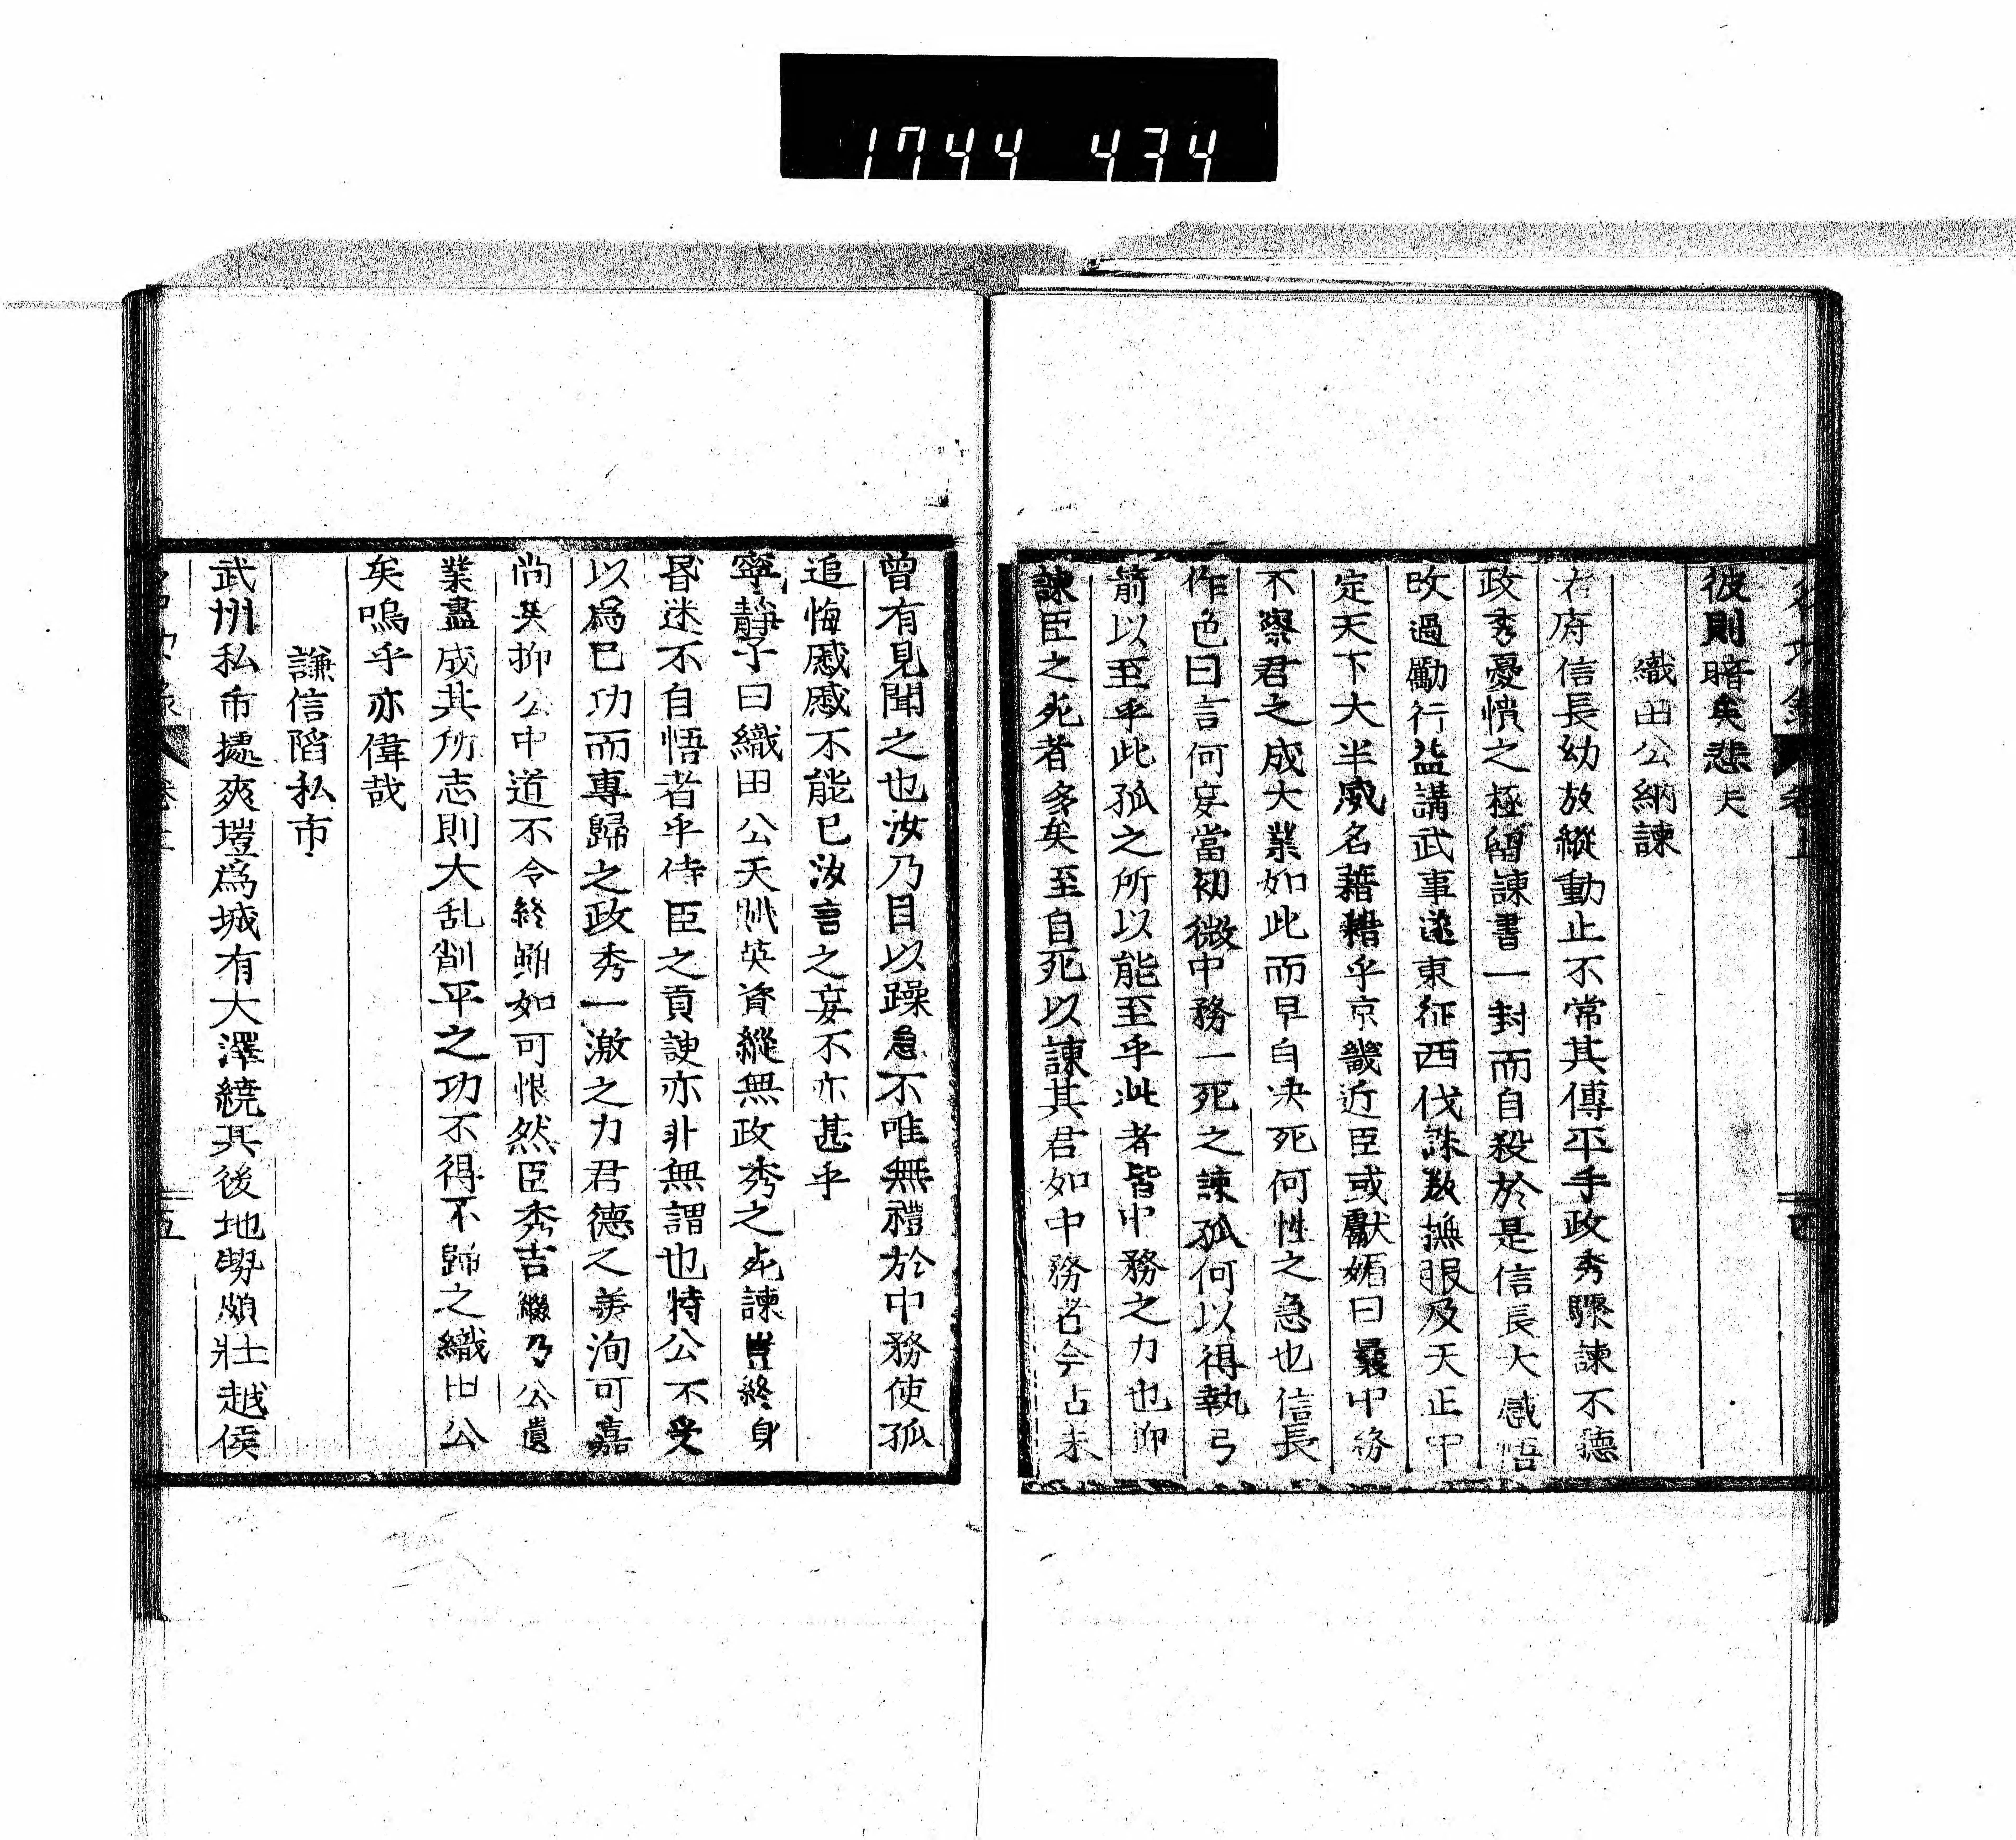 1744 434
彼則暗矣悲夫
織田公納諫
右府信長幼放縱動止不常其傳平手政秀驟諫不聽
政秀憂憤之極留諫書一封而自殺於是信長大感悟
改過勵行益講武事遂東征西伐誅叛撫服及天正中
定天下大半威名藉藉乎京畿近臣或獻媚曰曩中務
不察君之成大業如此而早自决死何性之急也信長
作色曰言何妄當初微中務一死之諫孤何以得執弓
箭以至乎此孤之所以能至乎此者皆中務之力也抑
諫臣之死者多矣至自死以諫其君如中務者今占未
曾有見聞之也汝乃目以躁急不唯無禮於中務使孤
追悔慼慼不能已汝言之妄不亦甚乎
寧靜子曰織田公天縱英資縱無政秀之死諫豈終身
昏迷不自悟者乎侍臣之貢諛亦非無謂也特公不受
以爲己功而專歸之政秀一激之力君德之美洵可嘉
尚矣抑公中道不令終雖如可恨然臣秀吉繼乃公遺
業盡成其所志則大乱削平之功不得不歸之織田公
矣嗚乎亦偉哉
謙信陷私市
武州私市據爽塏爲城有大澤繞其後地勢頗壯越侯
五